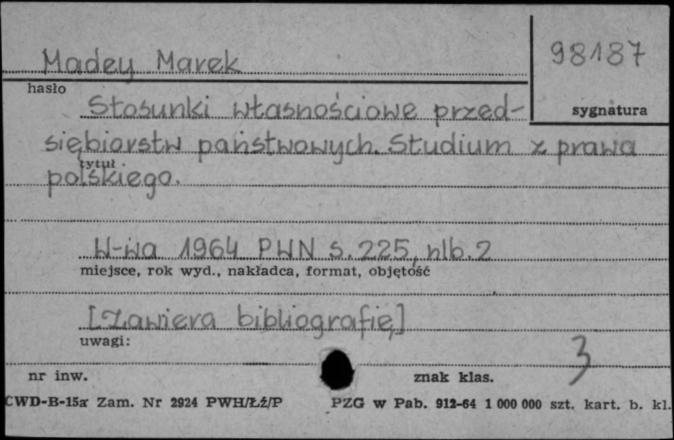 Madey Marek
98187
hasło
sygnatura
Stosunki własnościowe przed-
siębiorstw państwowych. Studium z prawa
tytuł
polskiego.
W-wa 1964 PWN s. 225, nlb. 2
miejsce, rok wyd., nakładca, format, objętość
[Zawiera bibliografię]
uwagi:
3
nr inw.
znak klas.
CWD-B-15a Zam. Nr 2924 PWH/Łź/P PZG w Pab. 912-64 1 000 000 szt. kart. b. kl.